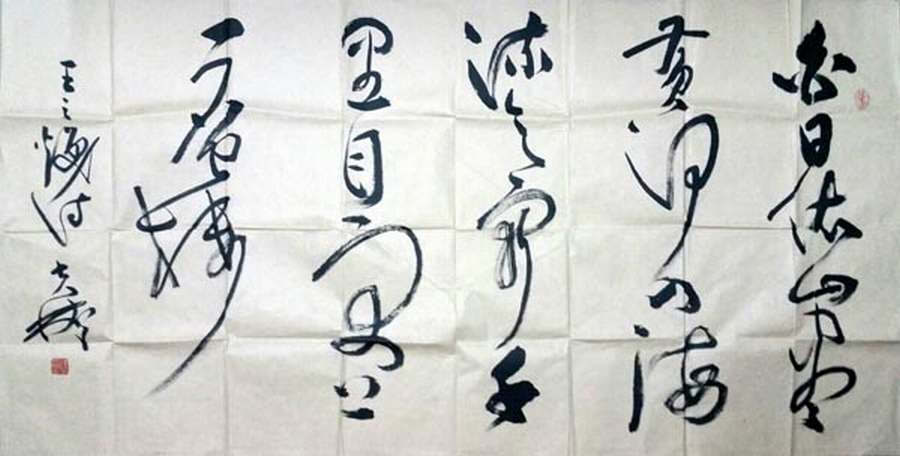 白日依山尽
黄河入海
流欲穷千
里目更上
一层楼
王之涣诗